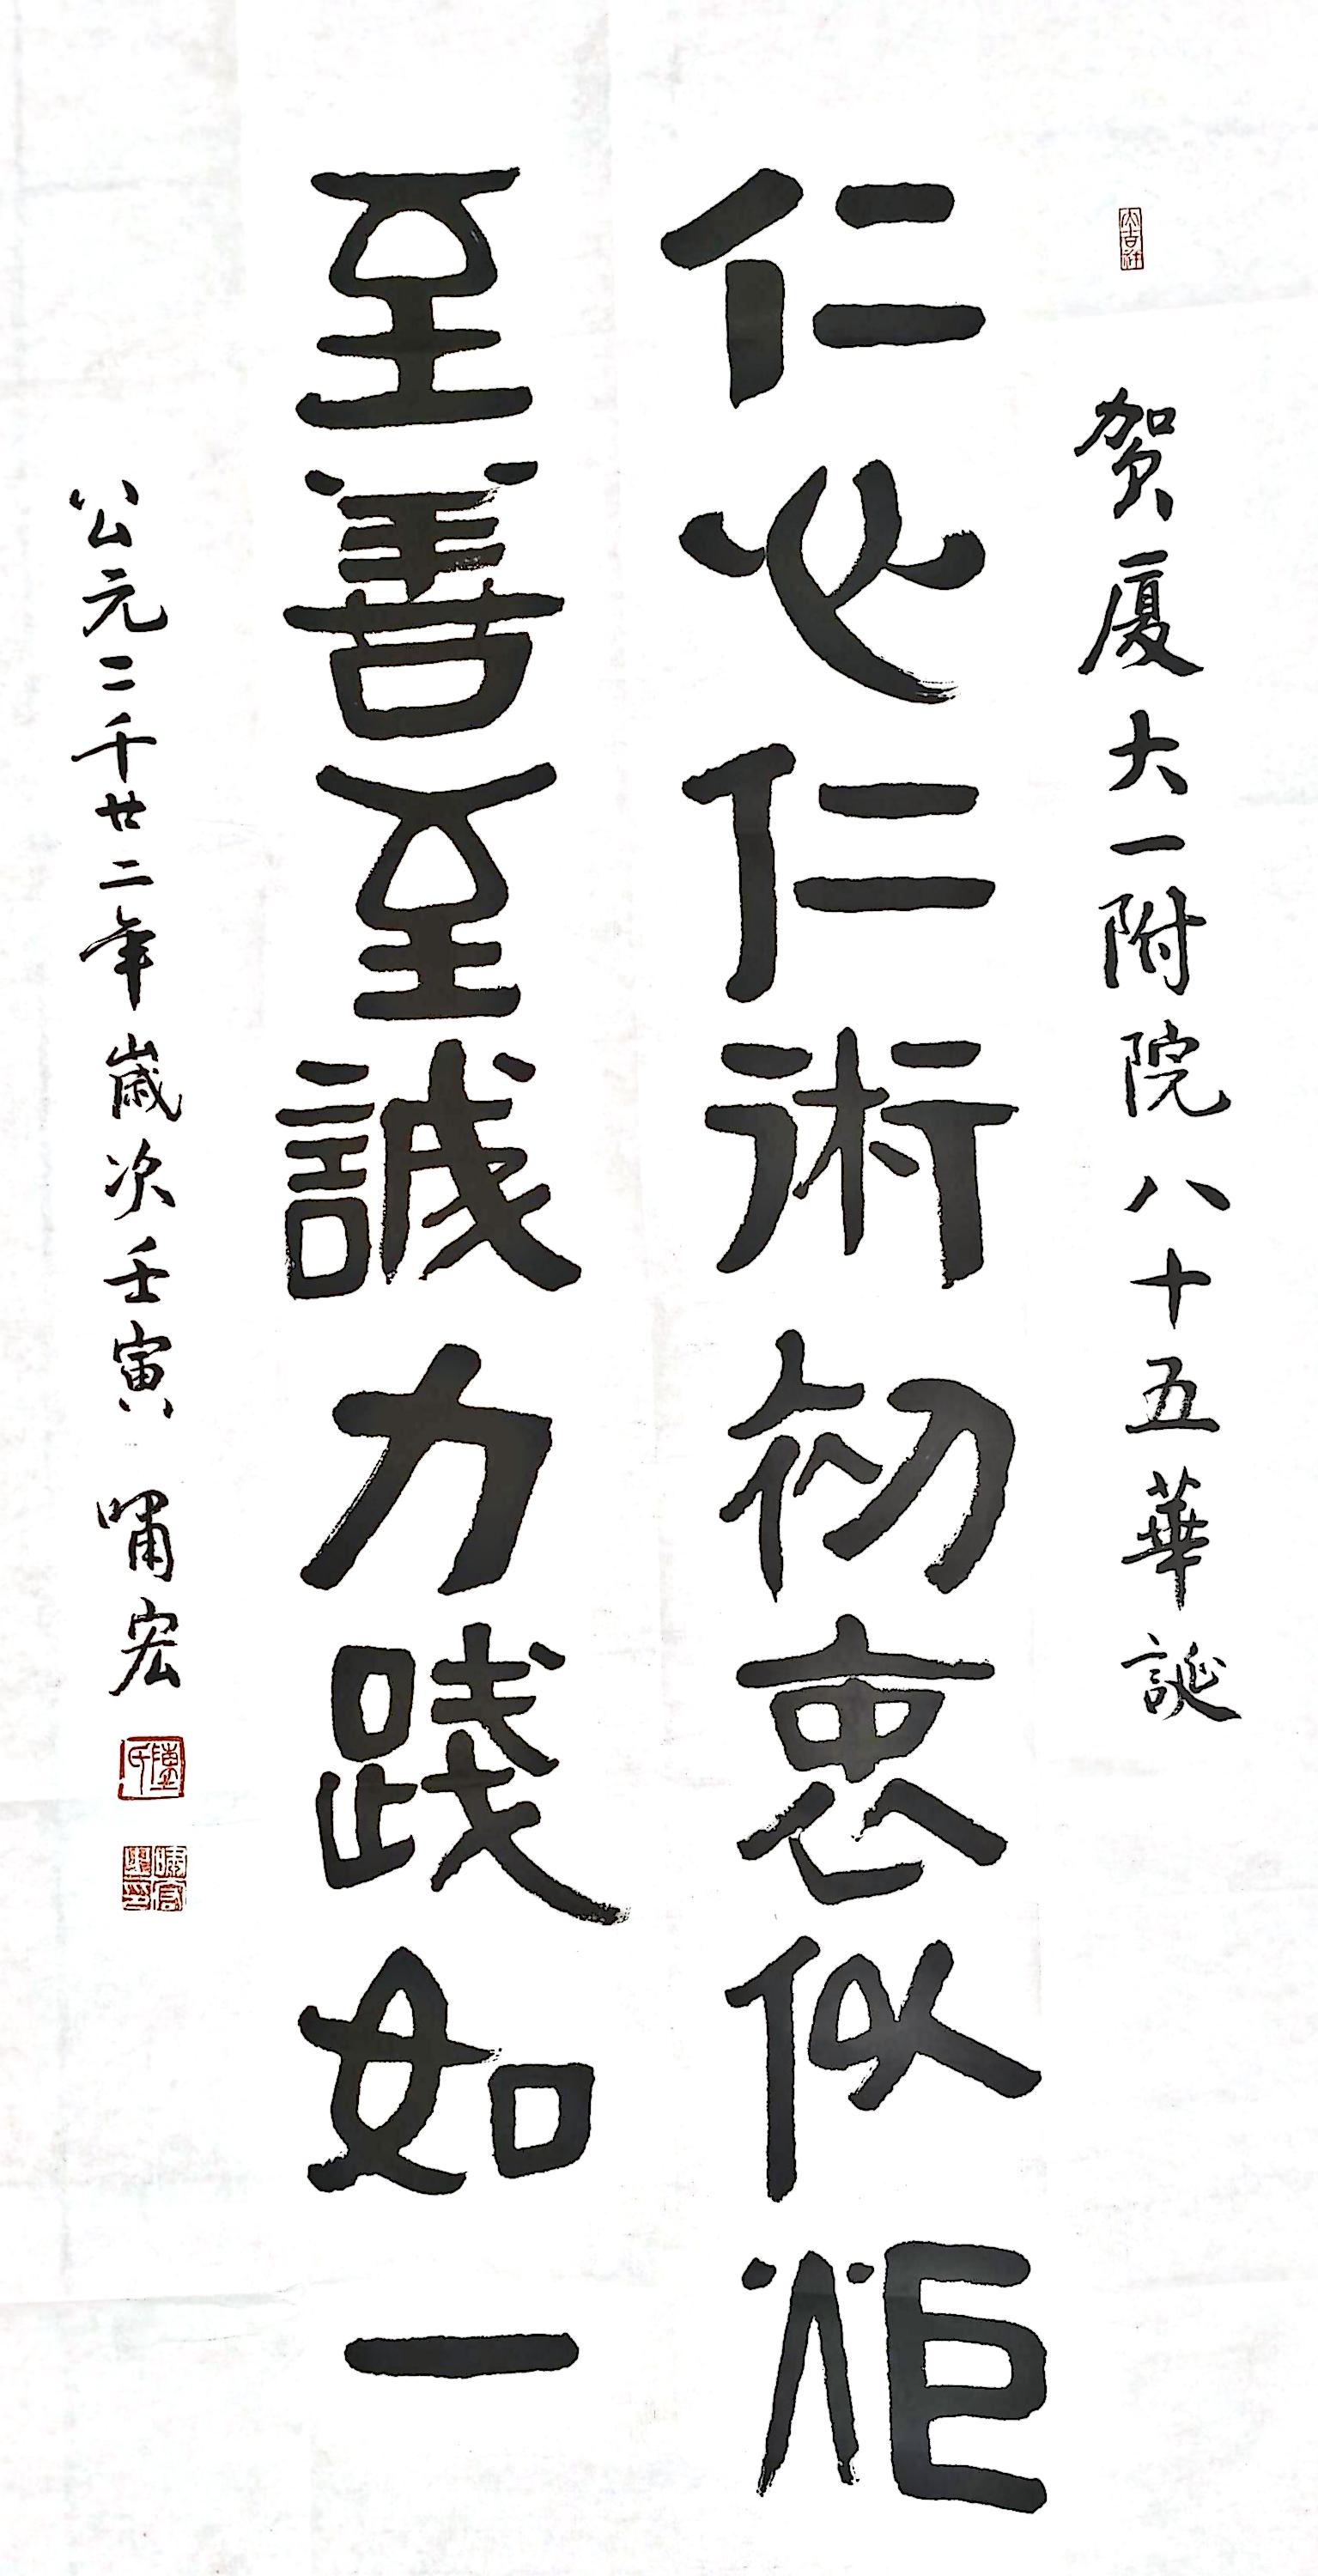 贺厦大一附院八十五華誕
仁心仁術初衷似炬
至善至誠力踐如一
公元二千廿二年歲次壬寅 嘯宏